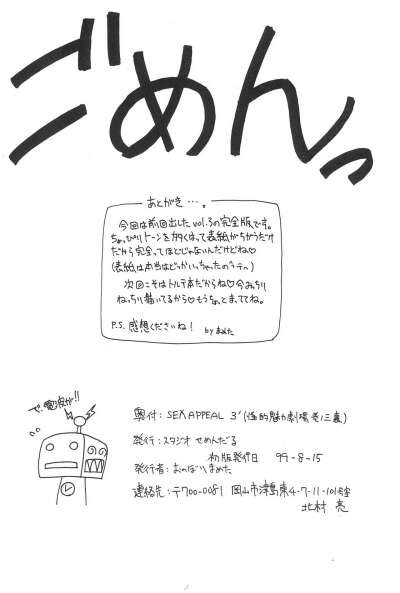 ごめんっ
あとがき…。
今回は前回出した vol.3の完全版です。
ちょっぴりトーンを多くはって表紙がちがうだけ
だから完全ってほどじゃないんだけどね♡
(表紙は本当はどっかいっちゃったのラテ。)
次回こそはトルテ本だからね♡今みっちり
ねっちり描いてるから♡もうちょとまっててね。
P.S. 感想くださいね! by まめた
で、電波が!!
奥付:SEX APPEAL 3'(性的魅力劇場 巻ノ三裏)
発行:スタジオ せめんだる
初版発行日 99-8-15
発行者:おのぼりまめた
連絡先:〒700-0081 岡山市津島東4-7-11-101号室
北村 亮